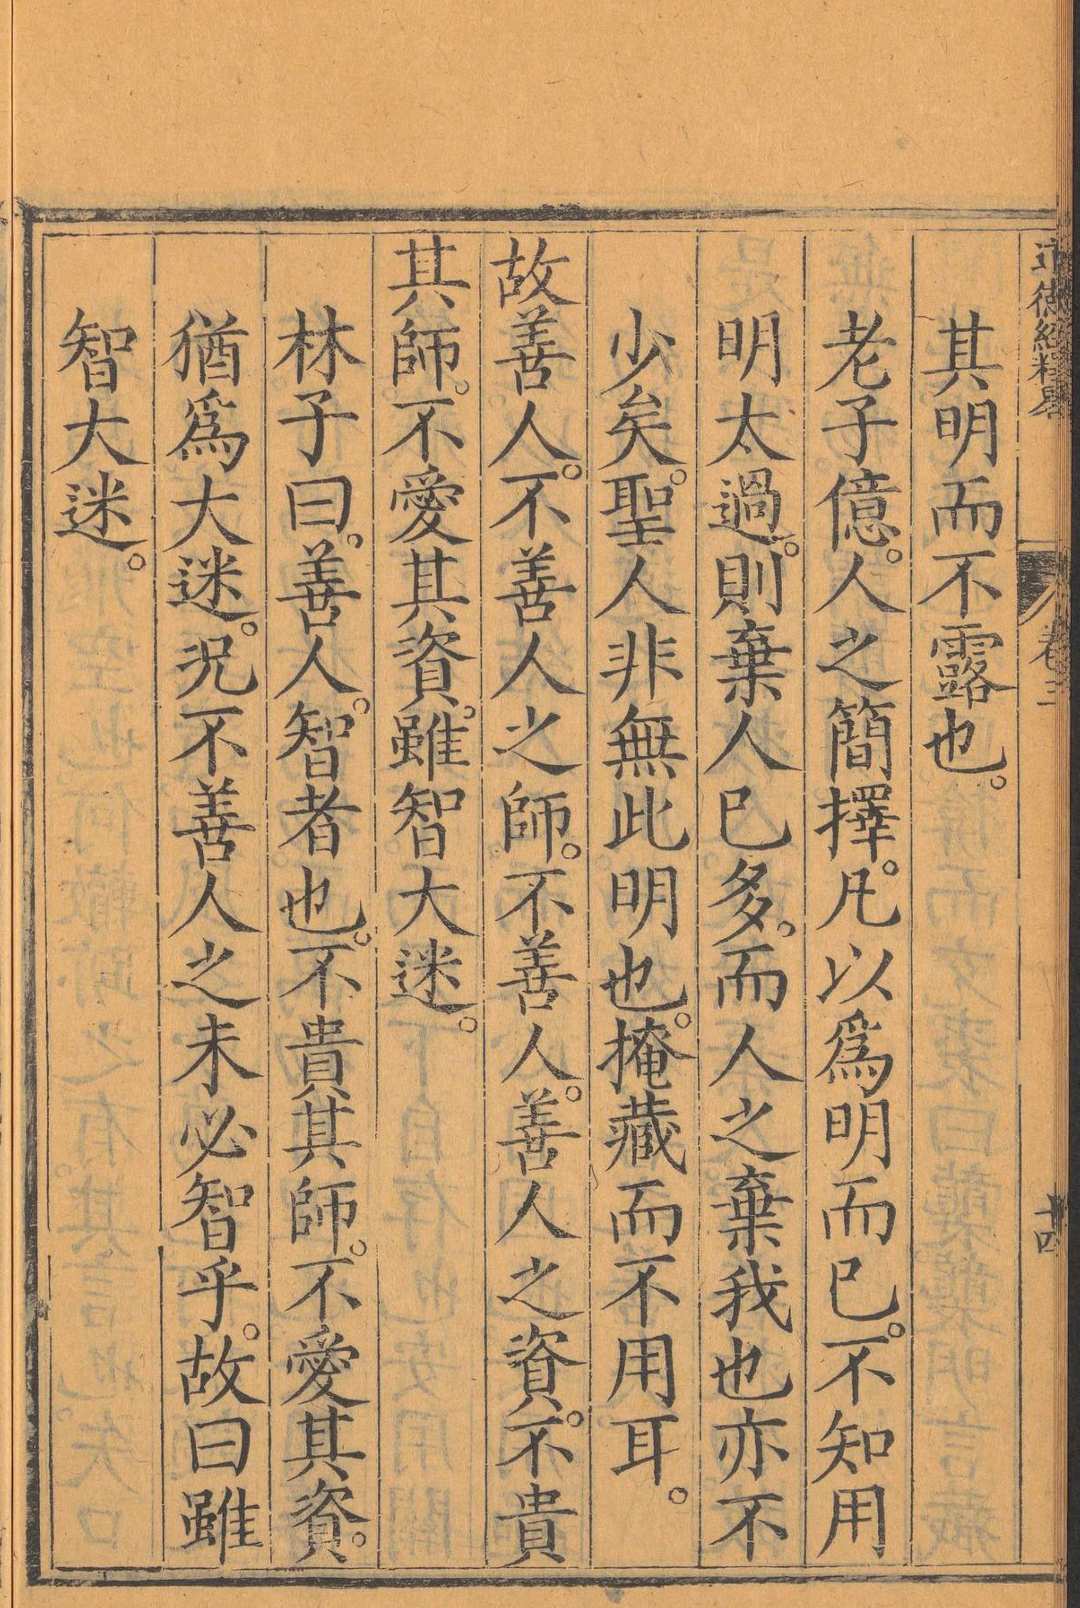 道德經釋畧 卷三 十四
其明而不露也。
老子億。人之簡擇。凡以爲明而已。不知用
明太過。則棄人已多。而人之棄我也亦不
少矣。聖人非無此明也。掩藏而不用耳。
故善人。不善人之師。不善人。善人之資。不貴
其師。不愛其資。雖智大迷。
林子曰。善人。智者也。不貴其師。不愛其資。
猶爲大迷。況不善人之未必智乎。故曰雖
智大迷。